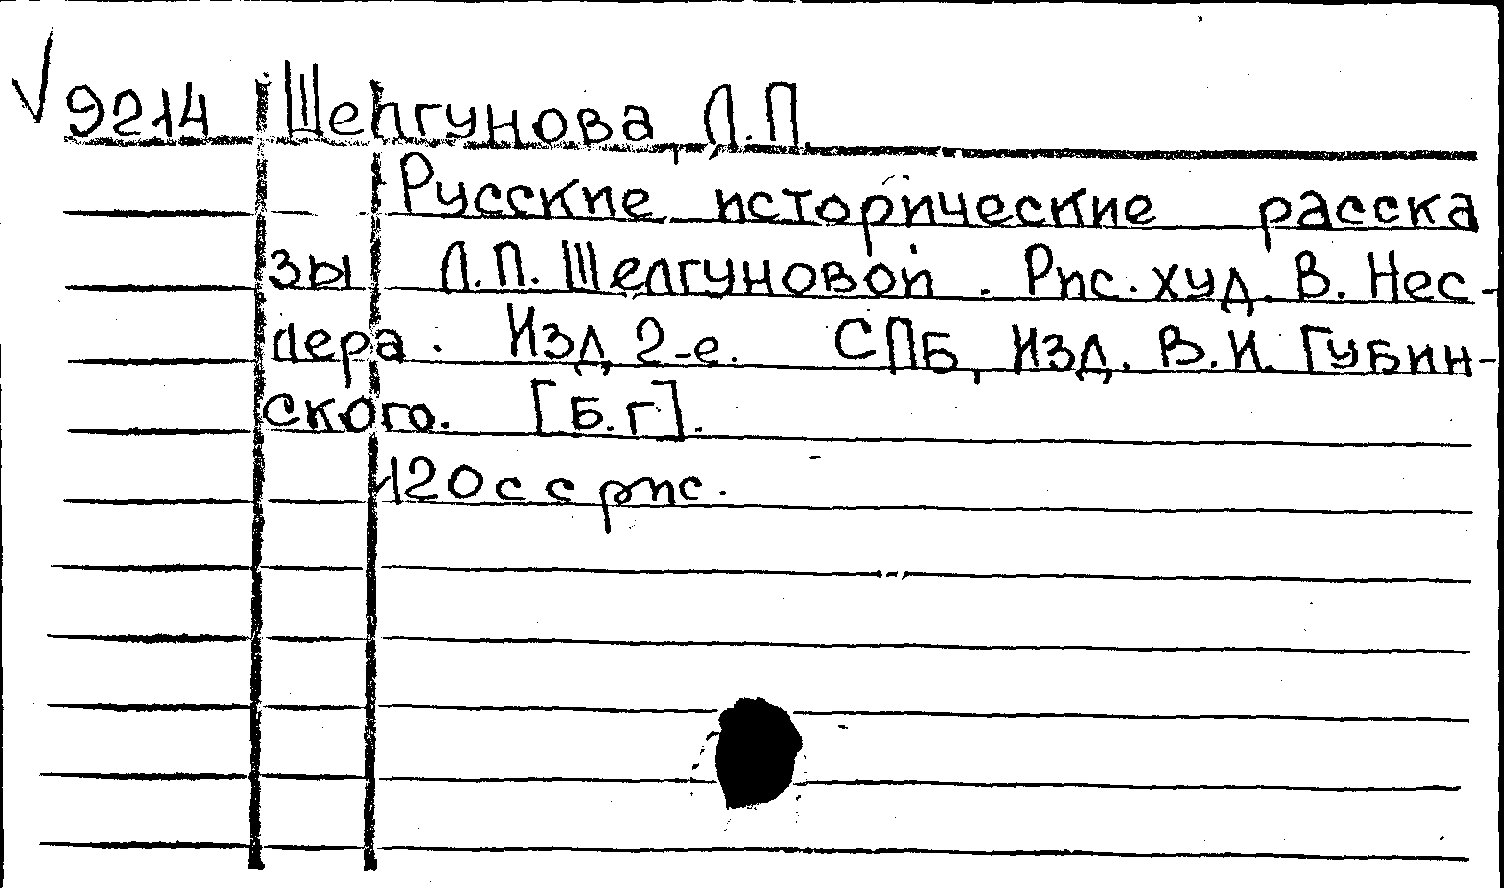 √ 9214 Шелгунова, Л.П.
Русские исторические расска
зы Л.П. Шелгуновой. Рис. худ. В. Нес-
лера. Изд 2-е. СПБ, Изд. В.И. Губин-
ского. [Б.г].
120 с с рис.